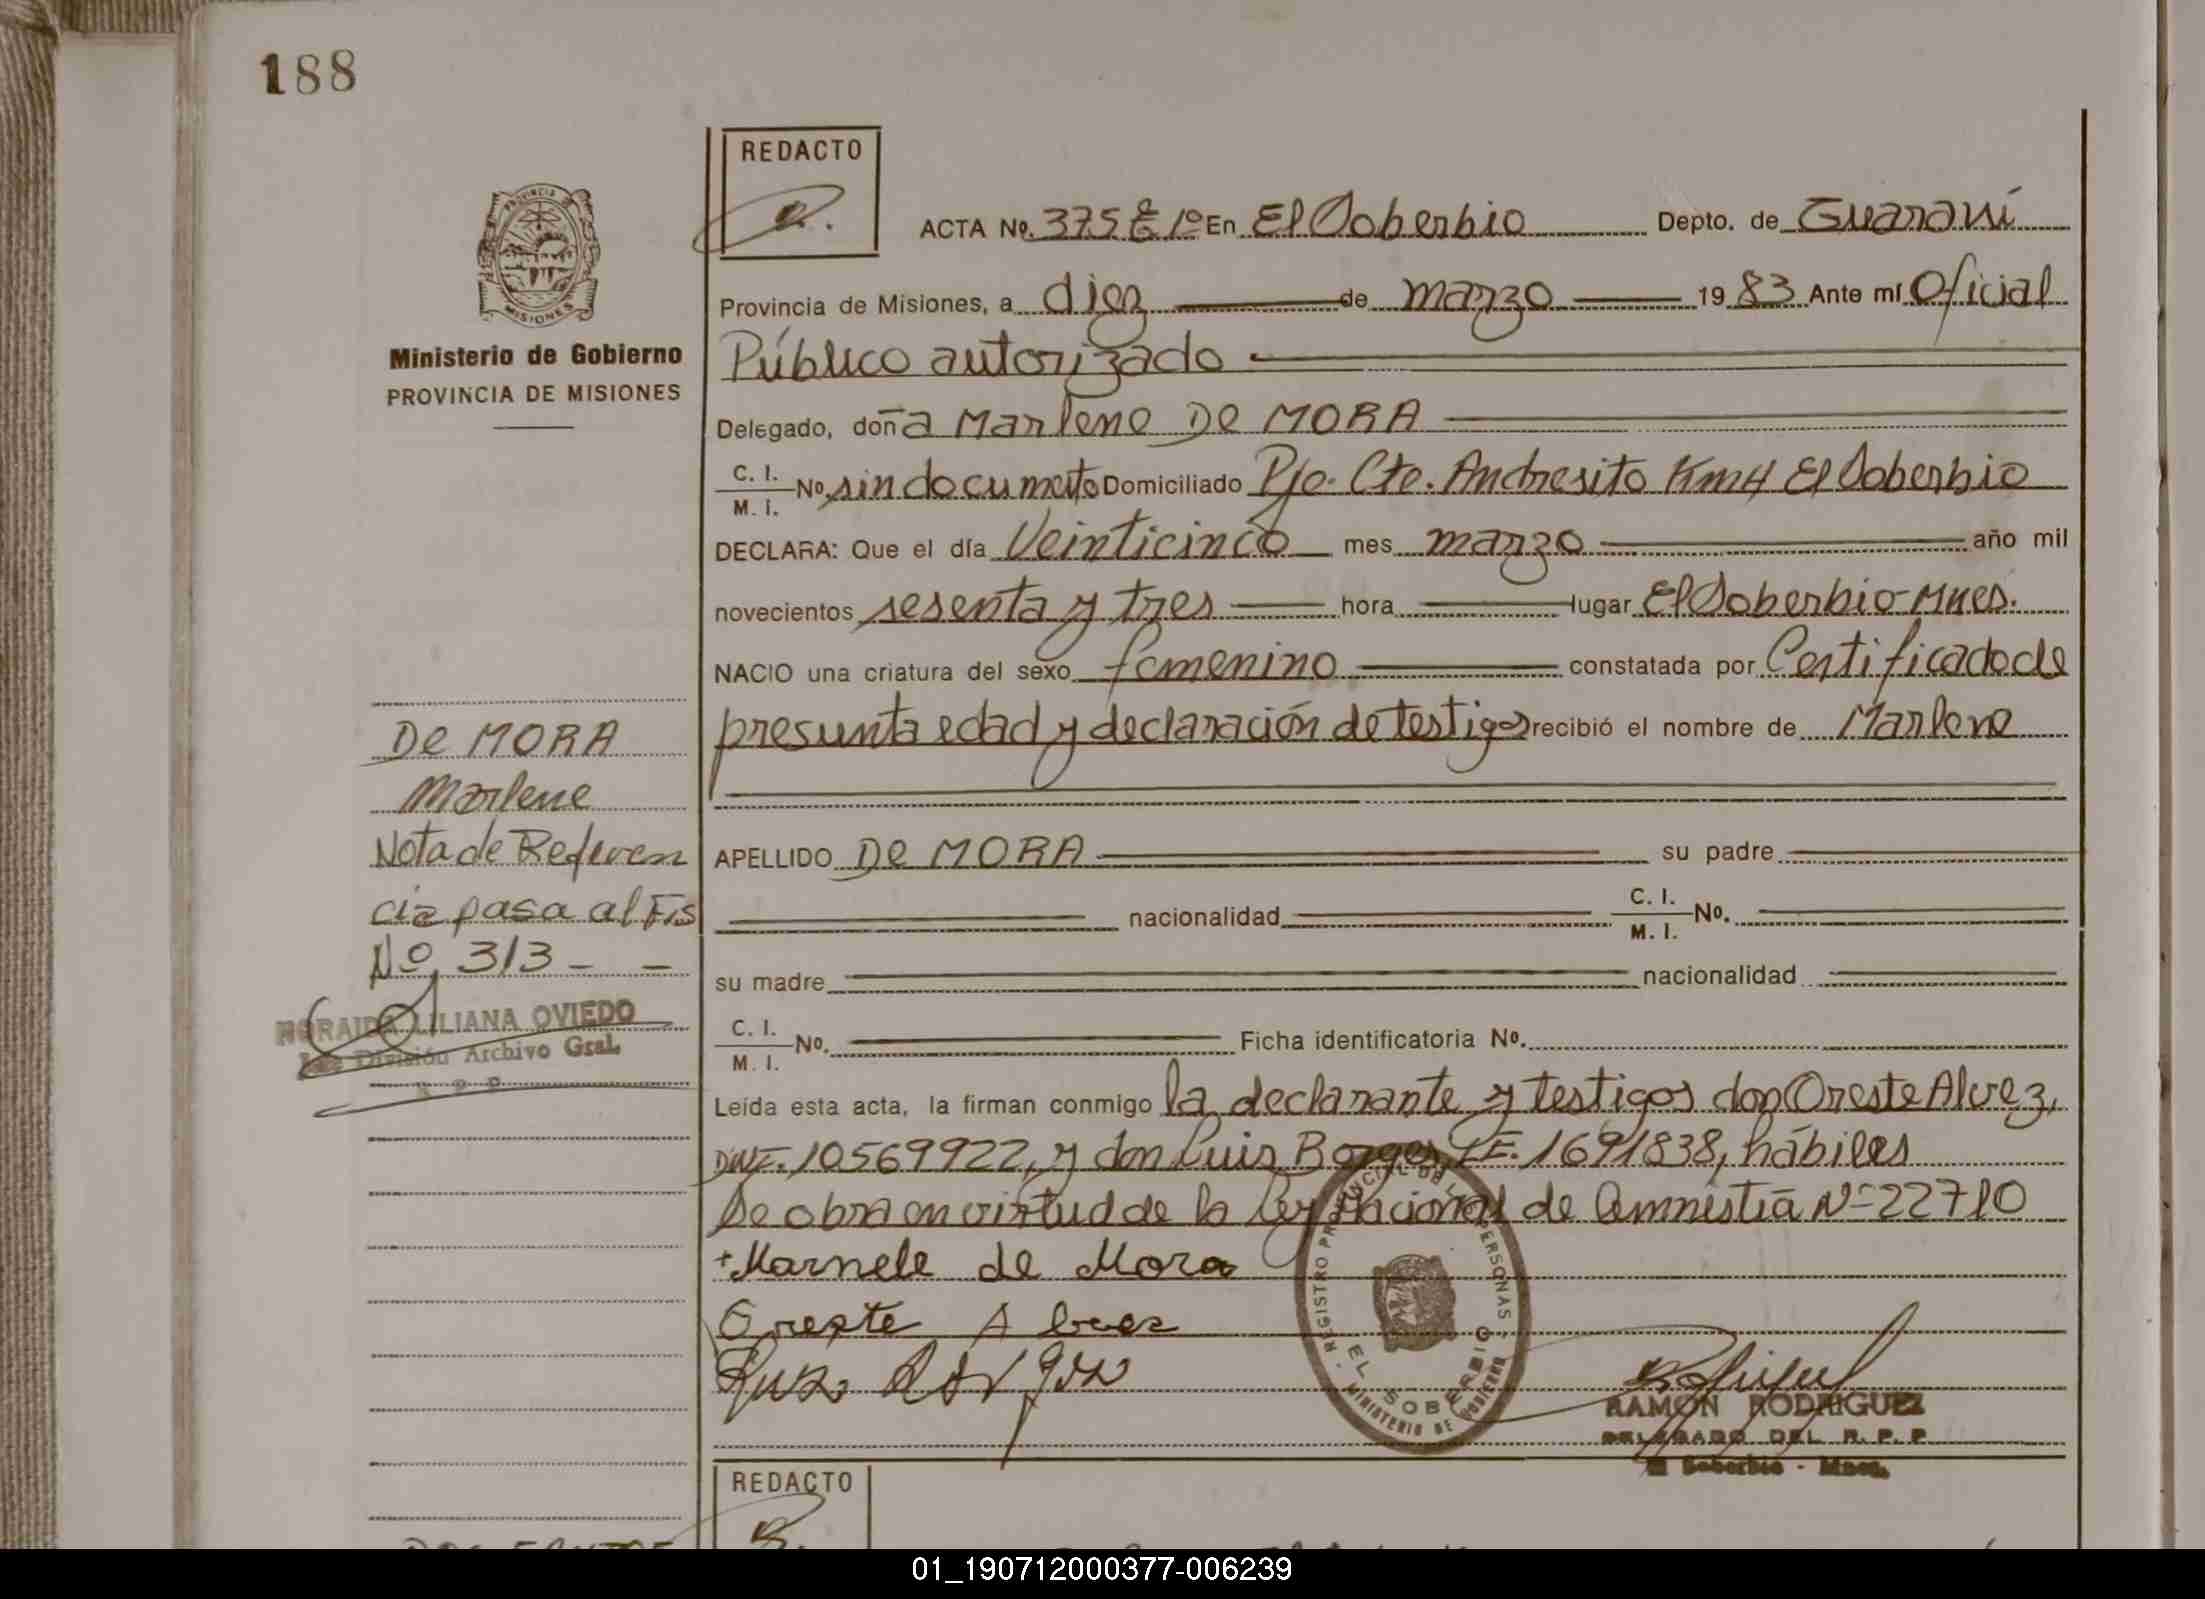 188
REDACTO
ACTA No. 375 En El Soberbio Depto. de Guaraní
Provincia de Misiones, a diez de marzo 1983 Ante mí Oficial
Público autorizado
Ministerio de Gobierno
PROVINCIA DE MISIONES
Delegado, doña Marlene De MORA
C. I.
M. I. No. sin documento Domiciliado Pje. Cte. Andresito Km 4 El Soberbio
DECLARA: Que el día Veinticinco mes marzo año mil
novecientos sesenta y tres hora lugar El Soberbio-Mnes.
NACIO una criatura del sexo femenino constatada por Certificado de
presunta edad y declaración de testigos recibió el nombre de Marlene
De MORA
Marlene
Nota de Referen
cia pasa al Fs
No 313 - -
NORAIDA LILIANA OVIEDO
División Archivo Gral.
APELLIDO De MORA su padre
nacionalidad C. I.
M. I. No.
su madre nacionalidad
C. I.
M. I. No. Ficha identificatoria No.
Leída esta acta, la firman conmigo la declarante y testigos don Oreste Alvez,
DNI. 10569922, y don Luis Borges, LE. 1691838, hábiles
Se obra en virtud de la Ley Nacional de Amnistia Nº 22710
+Marnele de Mora
Oreste Alvez
REGISTRO PROVINCIAL DE LAS PERSONAS
EL SOBERBIO
MINISTERIO DE GOBIERNO
RAMON RODRIGUEZ
DELEGADO DEL R. P. P
El Soberbio - Mnes.
REDACTO
01_190712000377-006239